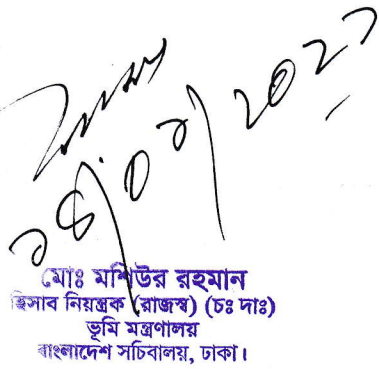 মোঃ মশিউর রহমান
হিসাব নিয়ন্ত্রক (রাজস্ব) (চঃ দাঃ)
ভূমি মন্ত্রণালয়
বাংলাদেশ সচিবালয়, ঢাকা।